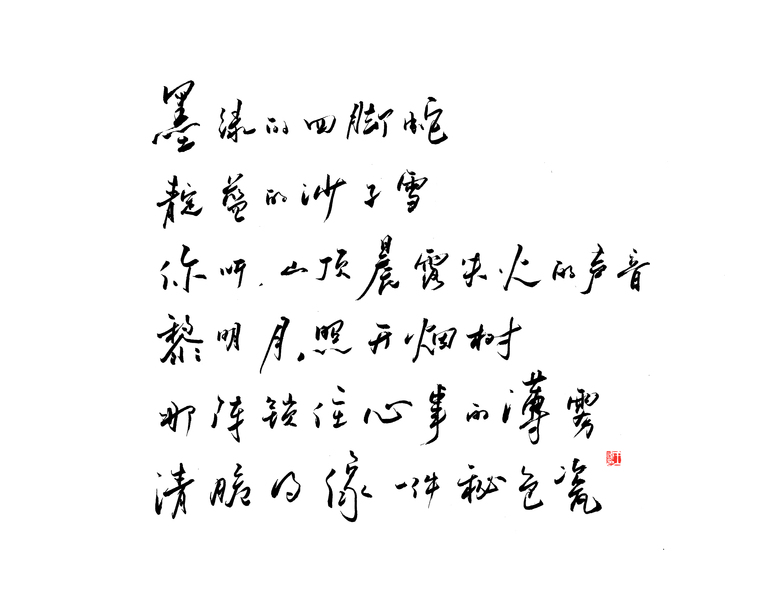 墨绿的四脚蛇
靛蓝的沙子雪
你听,山顶晨露失火的声音
黎明月。照开烟树
那阵锁住心事的薄雾
清脆得像一件秘色瓷